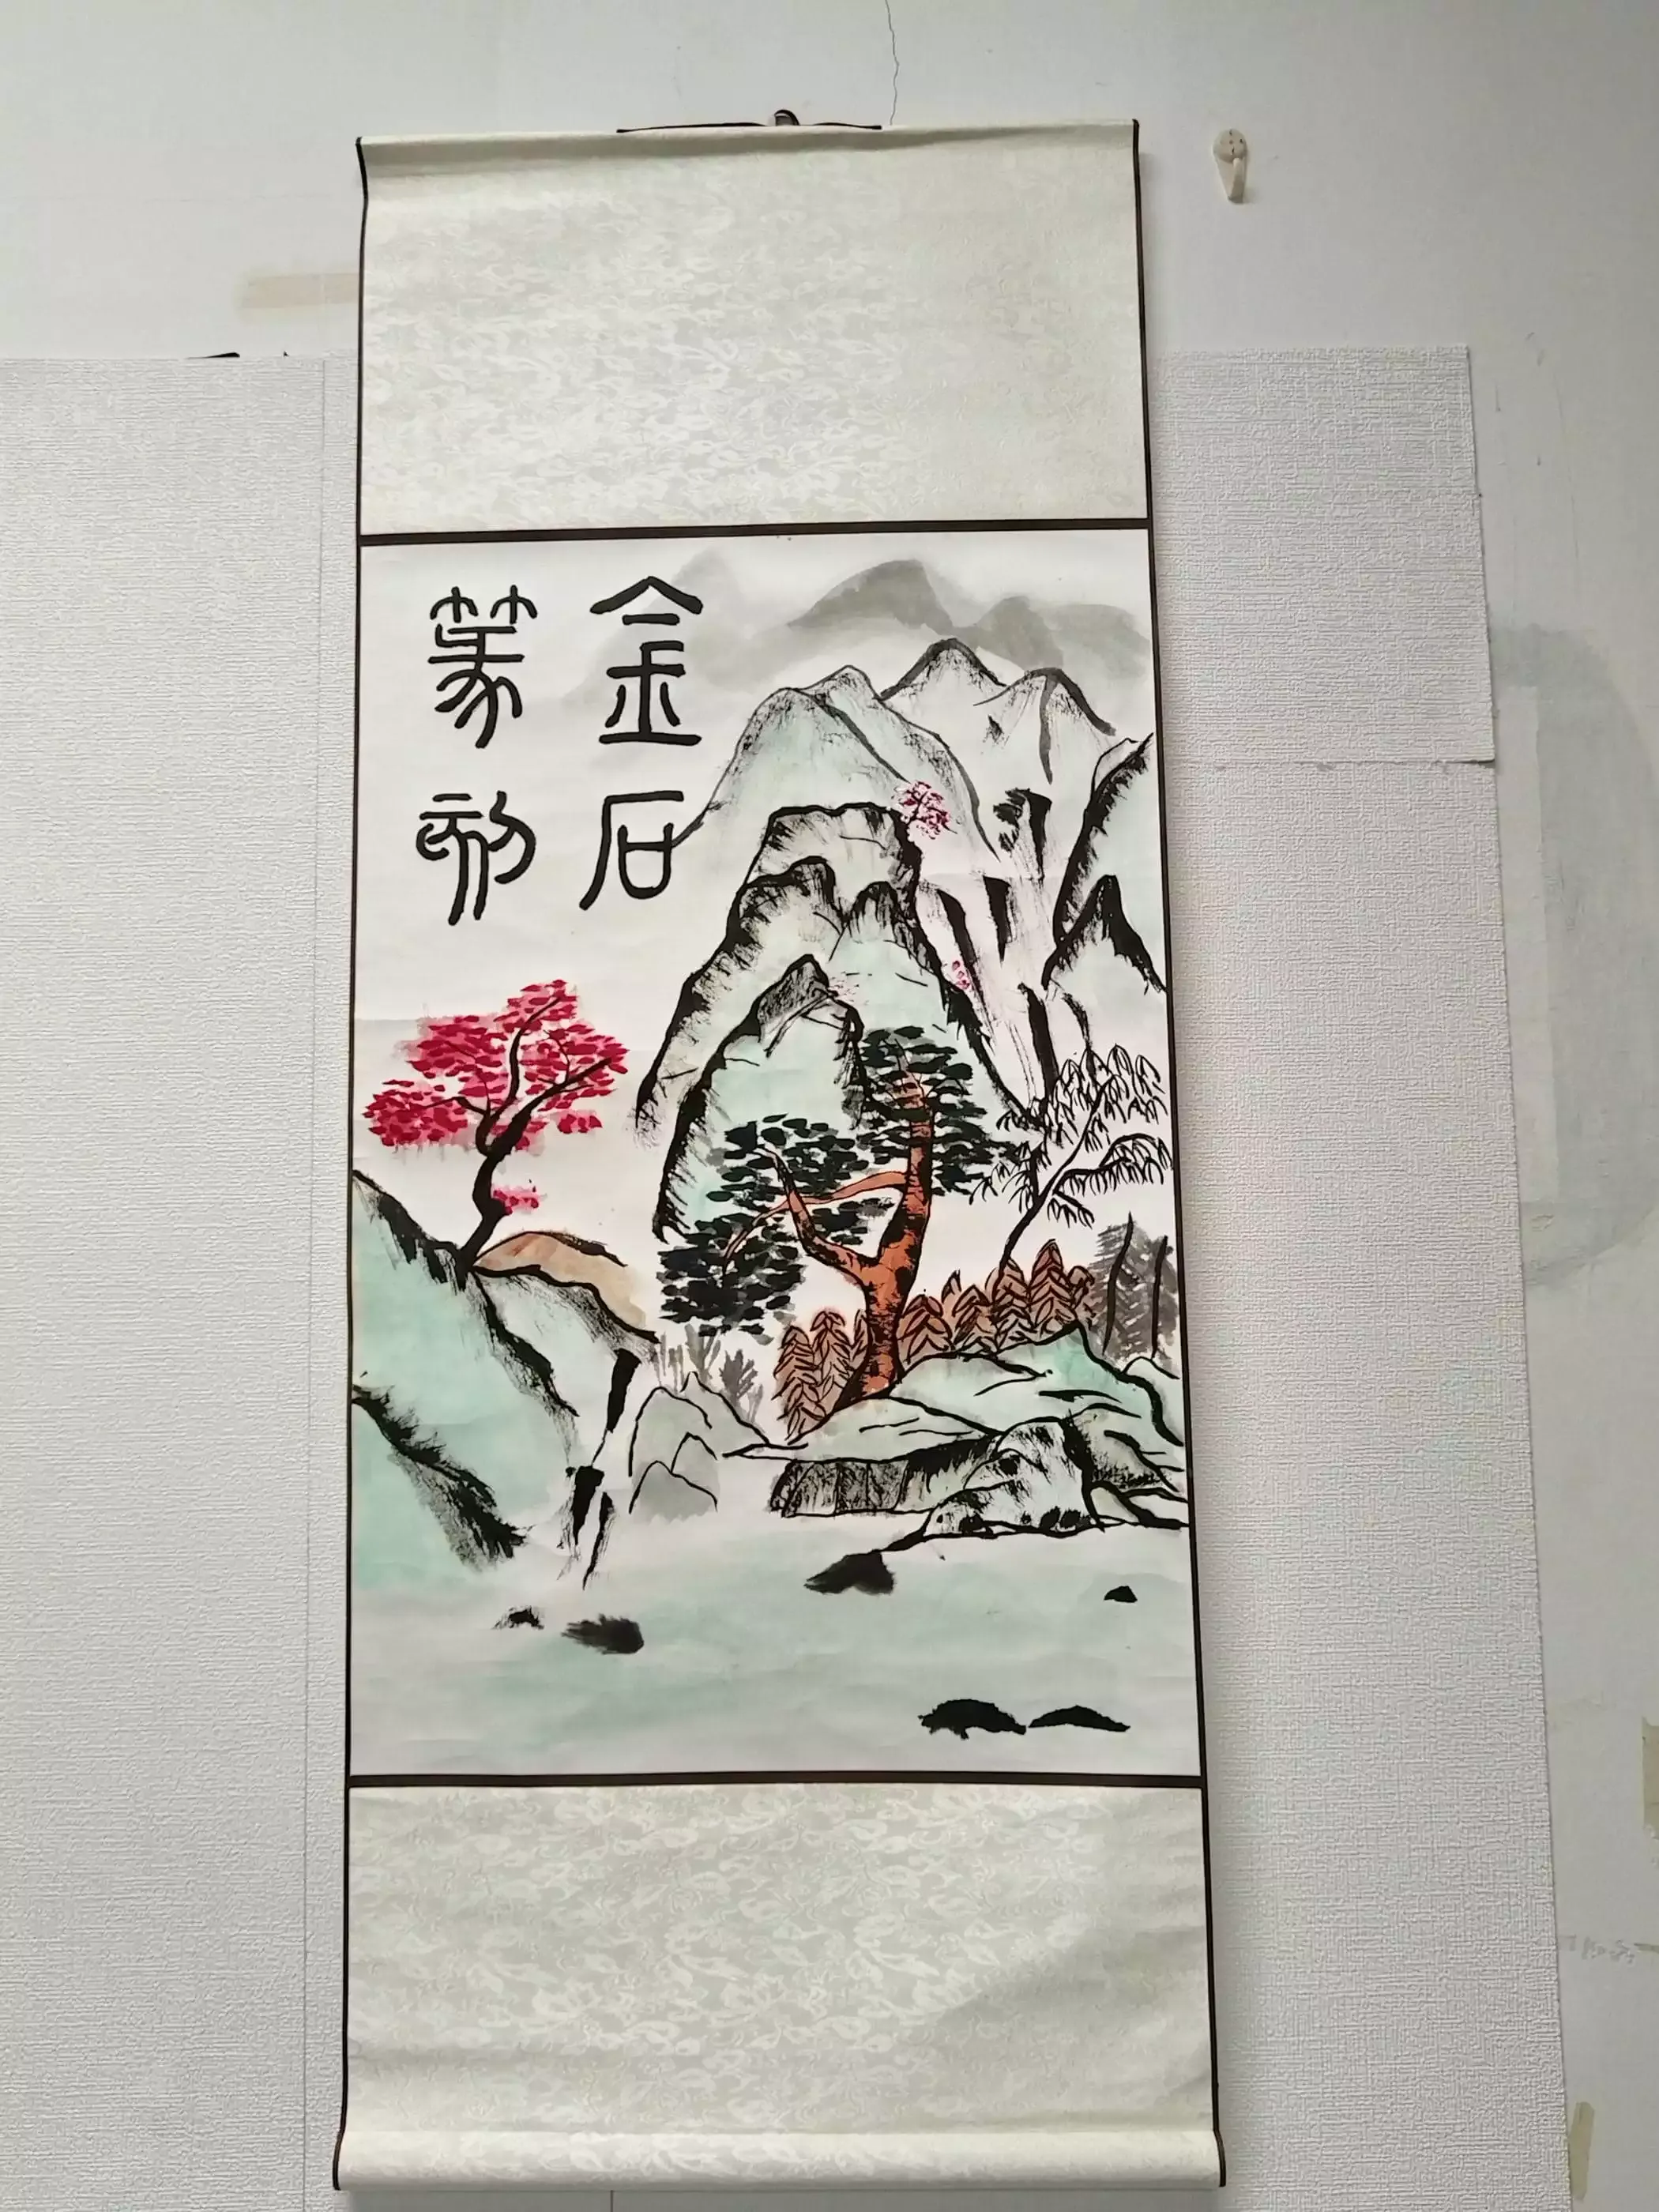 金石
篆刻